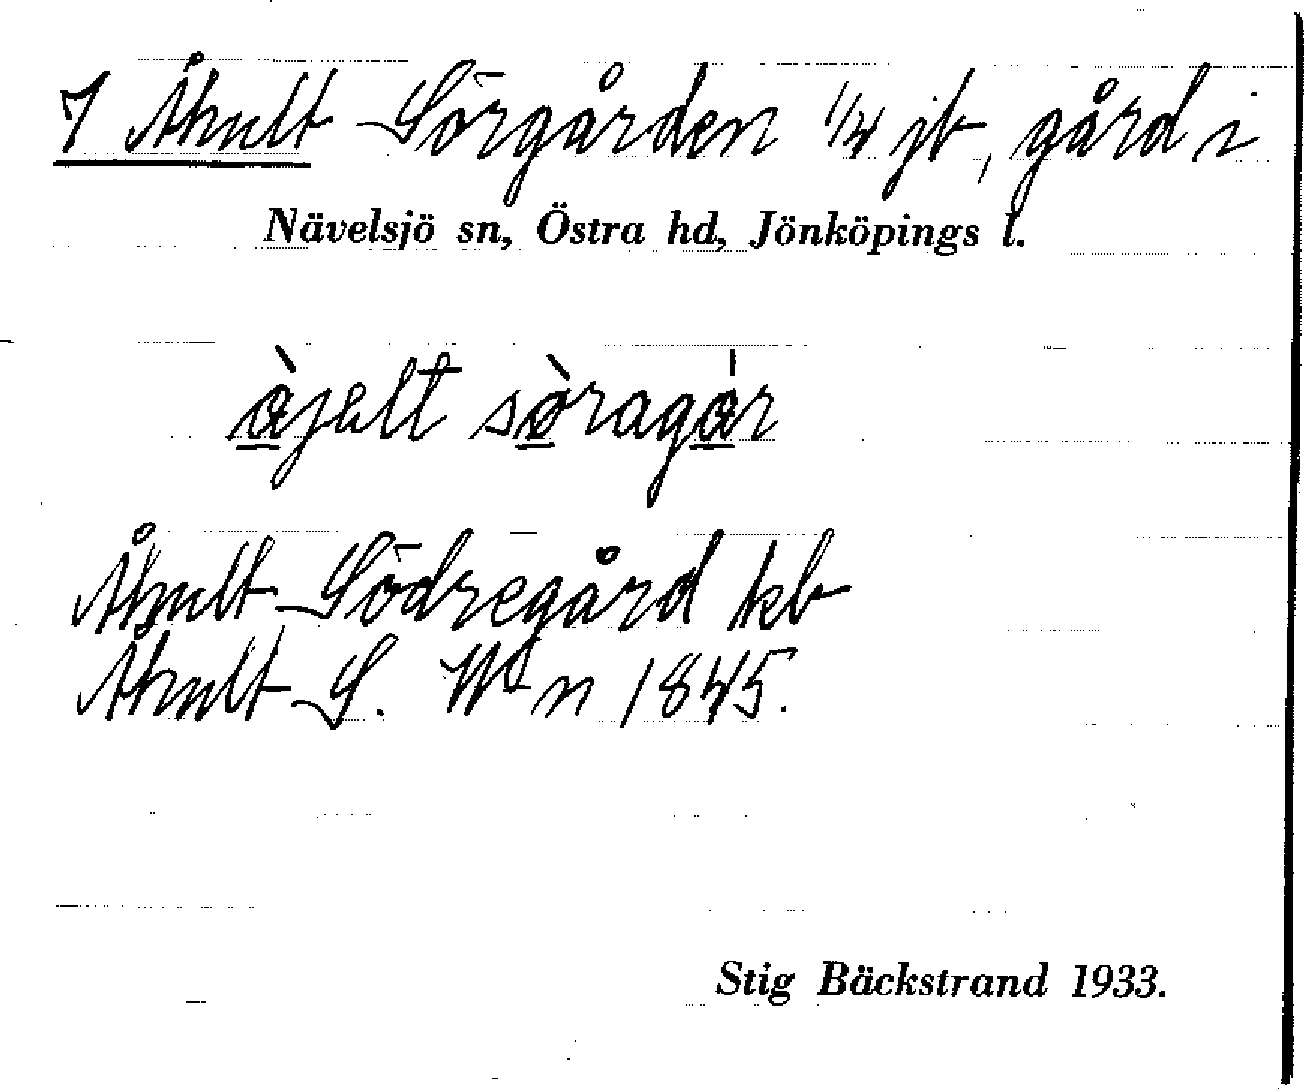 7 Åhult Sörgården 1/4 jb, gård i
Nävelsjö sn, Östra hd, Jönköpings l.
ò̱jelt sò̱ragȯ̱r
Åhult Södregård kb
Åhult S. Wn 1845.
Stig Bäckstrand 1933.